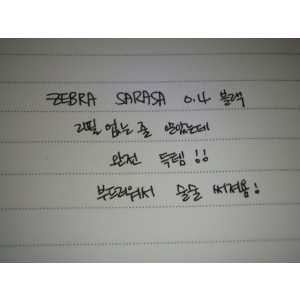 ZEBRA SARASA 0.4 블랙
리필 없는 줄 알았는데
완전 득템!!
부드러워서 술술 써져욤!